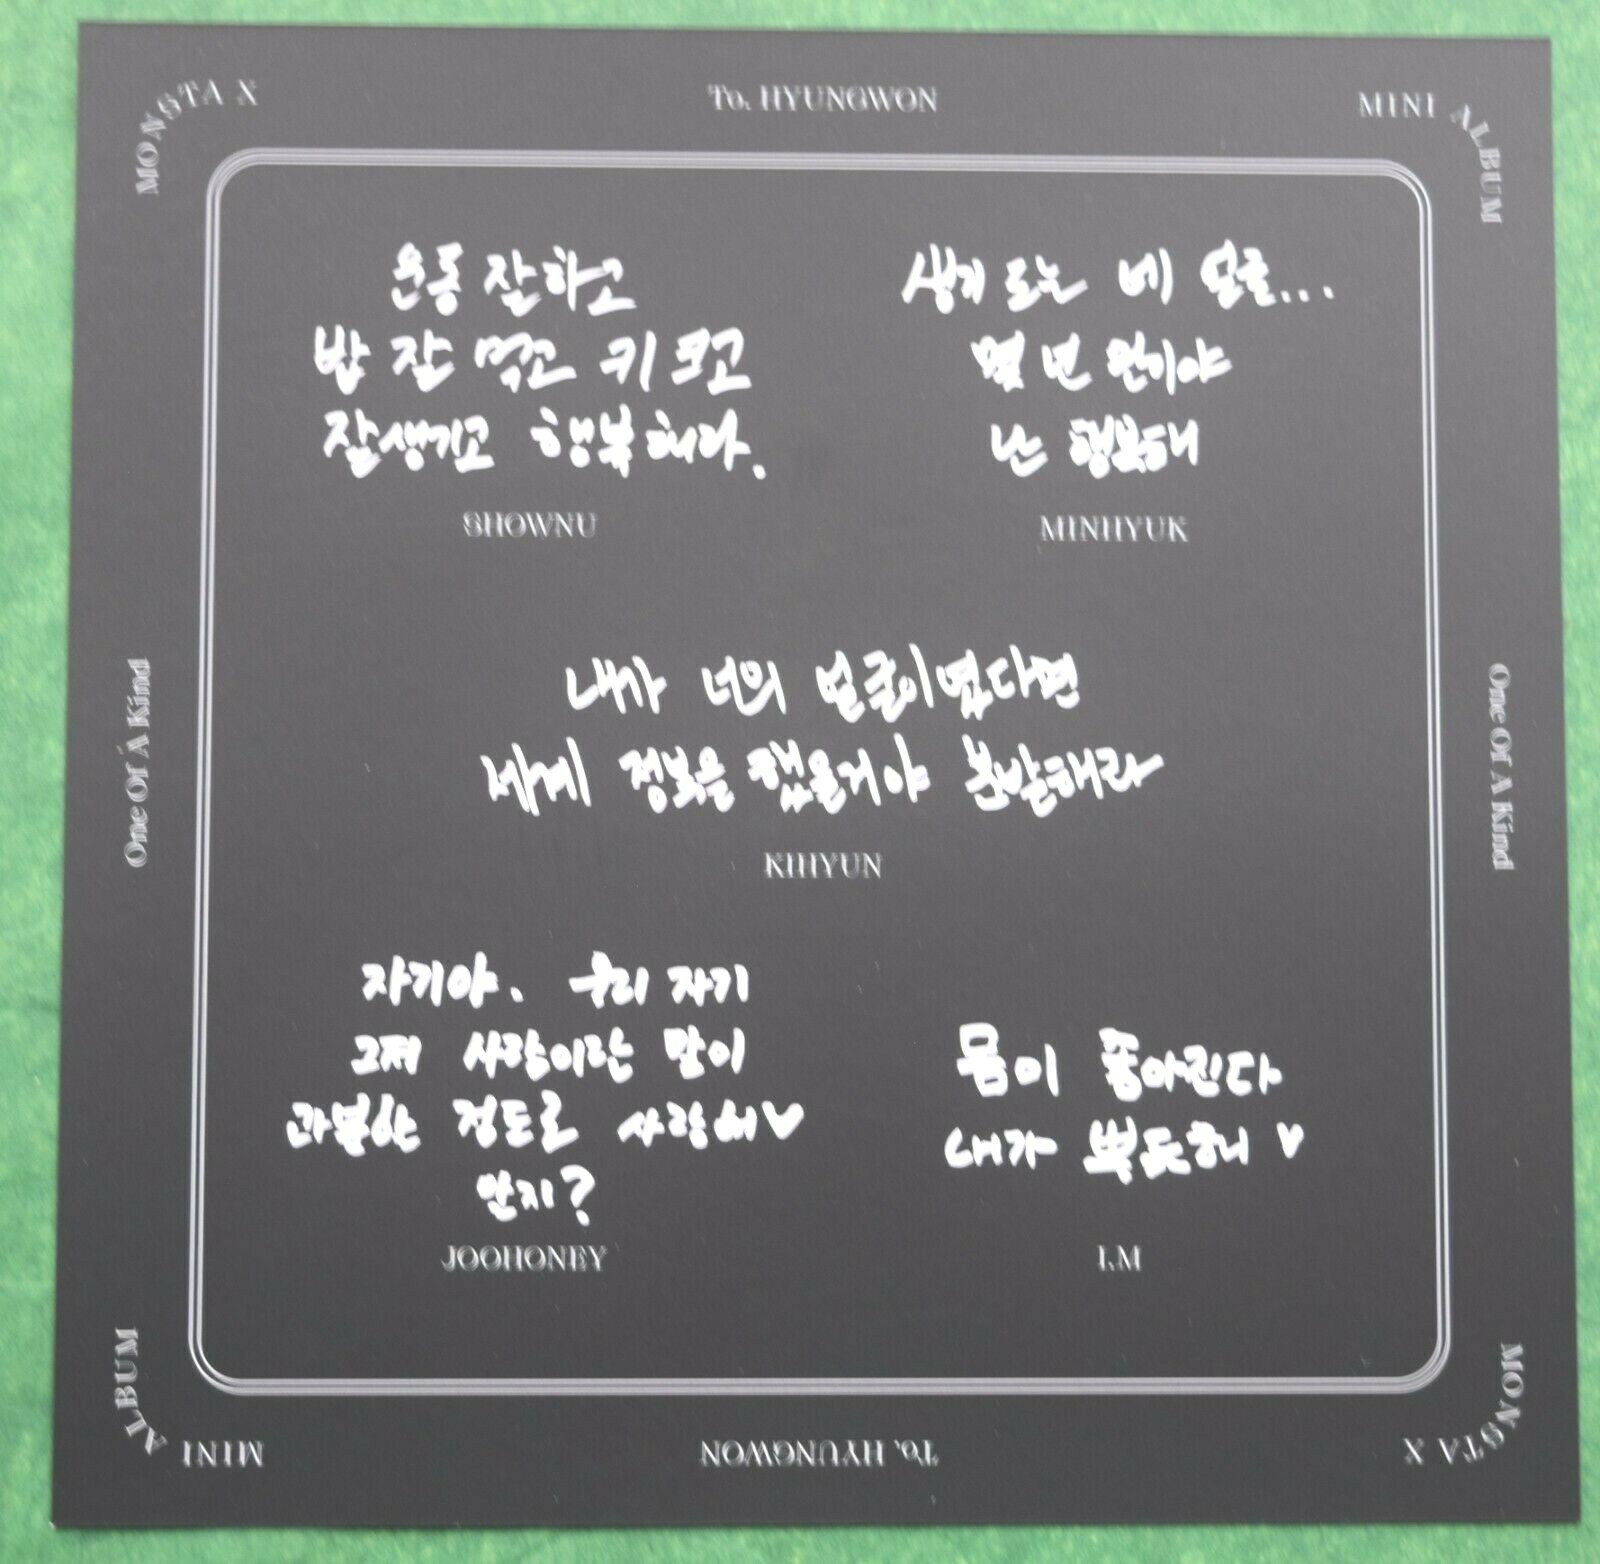 MONSTA X
To. HYUNGWON
MINI ALBUM
운동 잘하고
밥 잘 먹고 키 크고
잘생기고 행복해라.
SHOWNU
생기 도는 네 얼굴...
몇 년 만이야
난 행복해
MINHYUK
One Of A Kind
One Of A Kind
내가 너의 얼굴이였다면
세계 정복을 했을거야 분발해라
KIHYUN
자기야. 우리 자기
그저 사랑이란 말이
과분할 정도로 사랑해♥
알지?
JOOHONEY
몸이 좋아진다
내가 뿌듯해 ♥
I.M
MINI ALBUM
To. HYUNGWON
MONSTA X